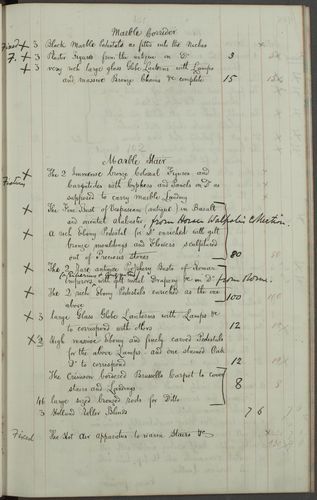 Marble Corridor
Fixed + 3 Black Marble Pedestals as fitted into the Niches
F. + 3 Plaster Figures from the antique on Do 3
+ 3 very rich large glass Globe Lanterns with Lamps
and massive Bronze Chains &c complete 15
162
Marble Stair
Fixtures x The 2 Immense bronze Colossal Figures and
Caryatides with Cyphers and Panels on Do as
supposed to carry Marble Landing
x The Fine Bust of Vespasian (antique) in Basalt
and oriental alabaster from Horace Walpole's Collection.
x A rich Ebony Pedestal for Do enriched with gilt
bronze mouldings and Flowers sculptured
out of Precious stones 80
x The 2 rare antique Porphyry Busts of Roman
Emperors with gilt metal Drapery &c on Do from Rome.
x The 2 rich Ebony Pedestals enriched as the one
above 100
x 3 large Glass Globe Lanterns with Lamps &c
to correspond with Hors 12
x 3 high massive Ebony and finely carved Pedestals
for the above Lamps and one stained Oak
Do to correspond 12
The Crimson bordered Brussells Carpet to cover
stairs and Landings 8
46 large sized bronzed rods for Ditto
3 Holland Roller Blinds 7 6
Fixed The Hot Air apparatus to warm Stairs &c